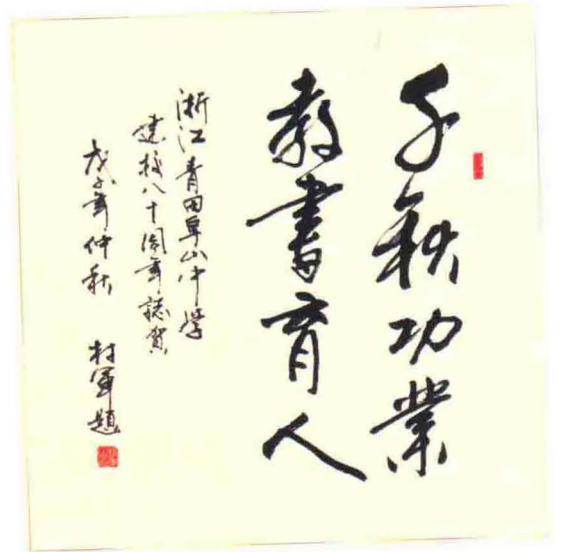 千秋功業
教書育人
浙江青田阜山中學
建校八十周年誌賀
戊子年仲秋 村軍題